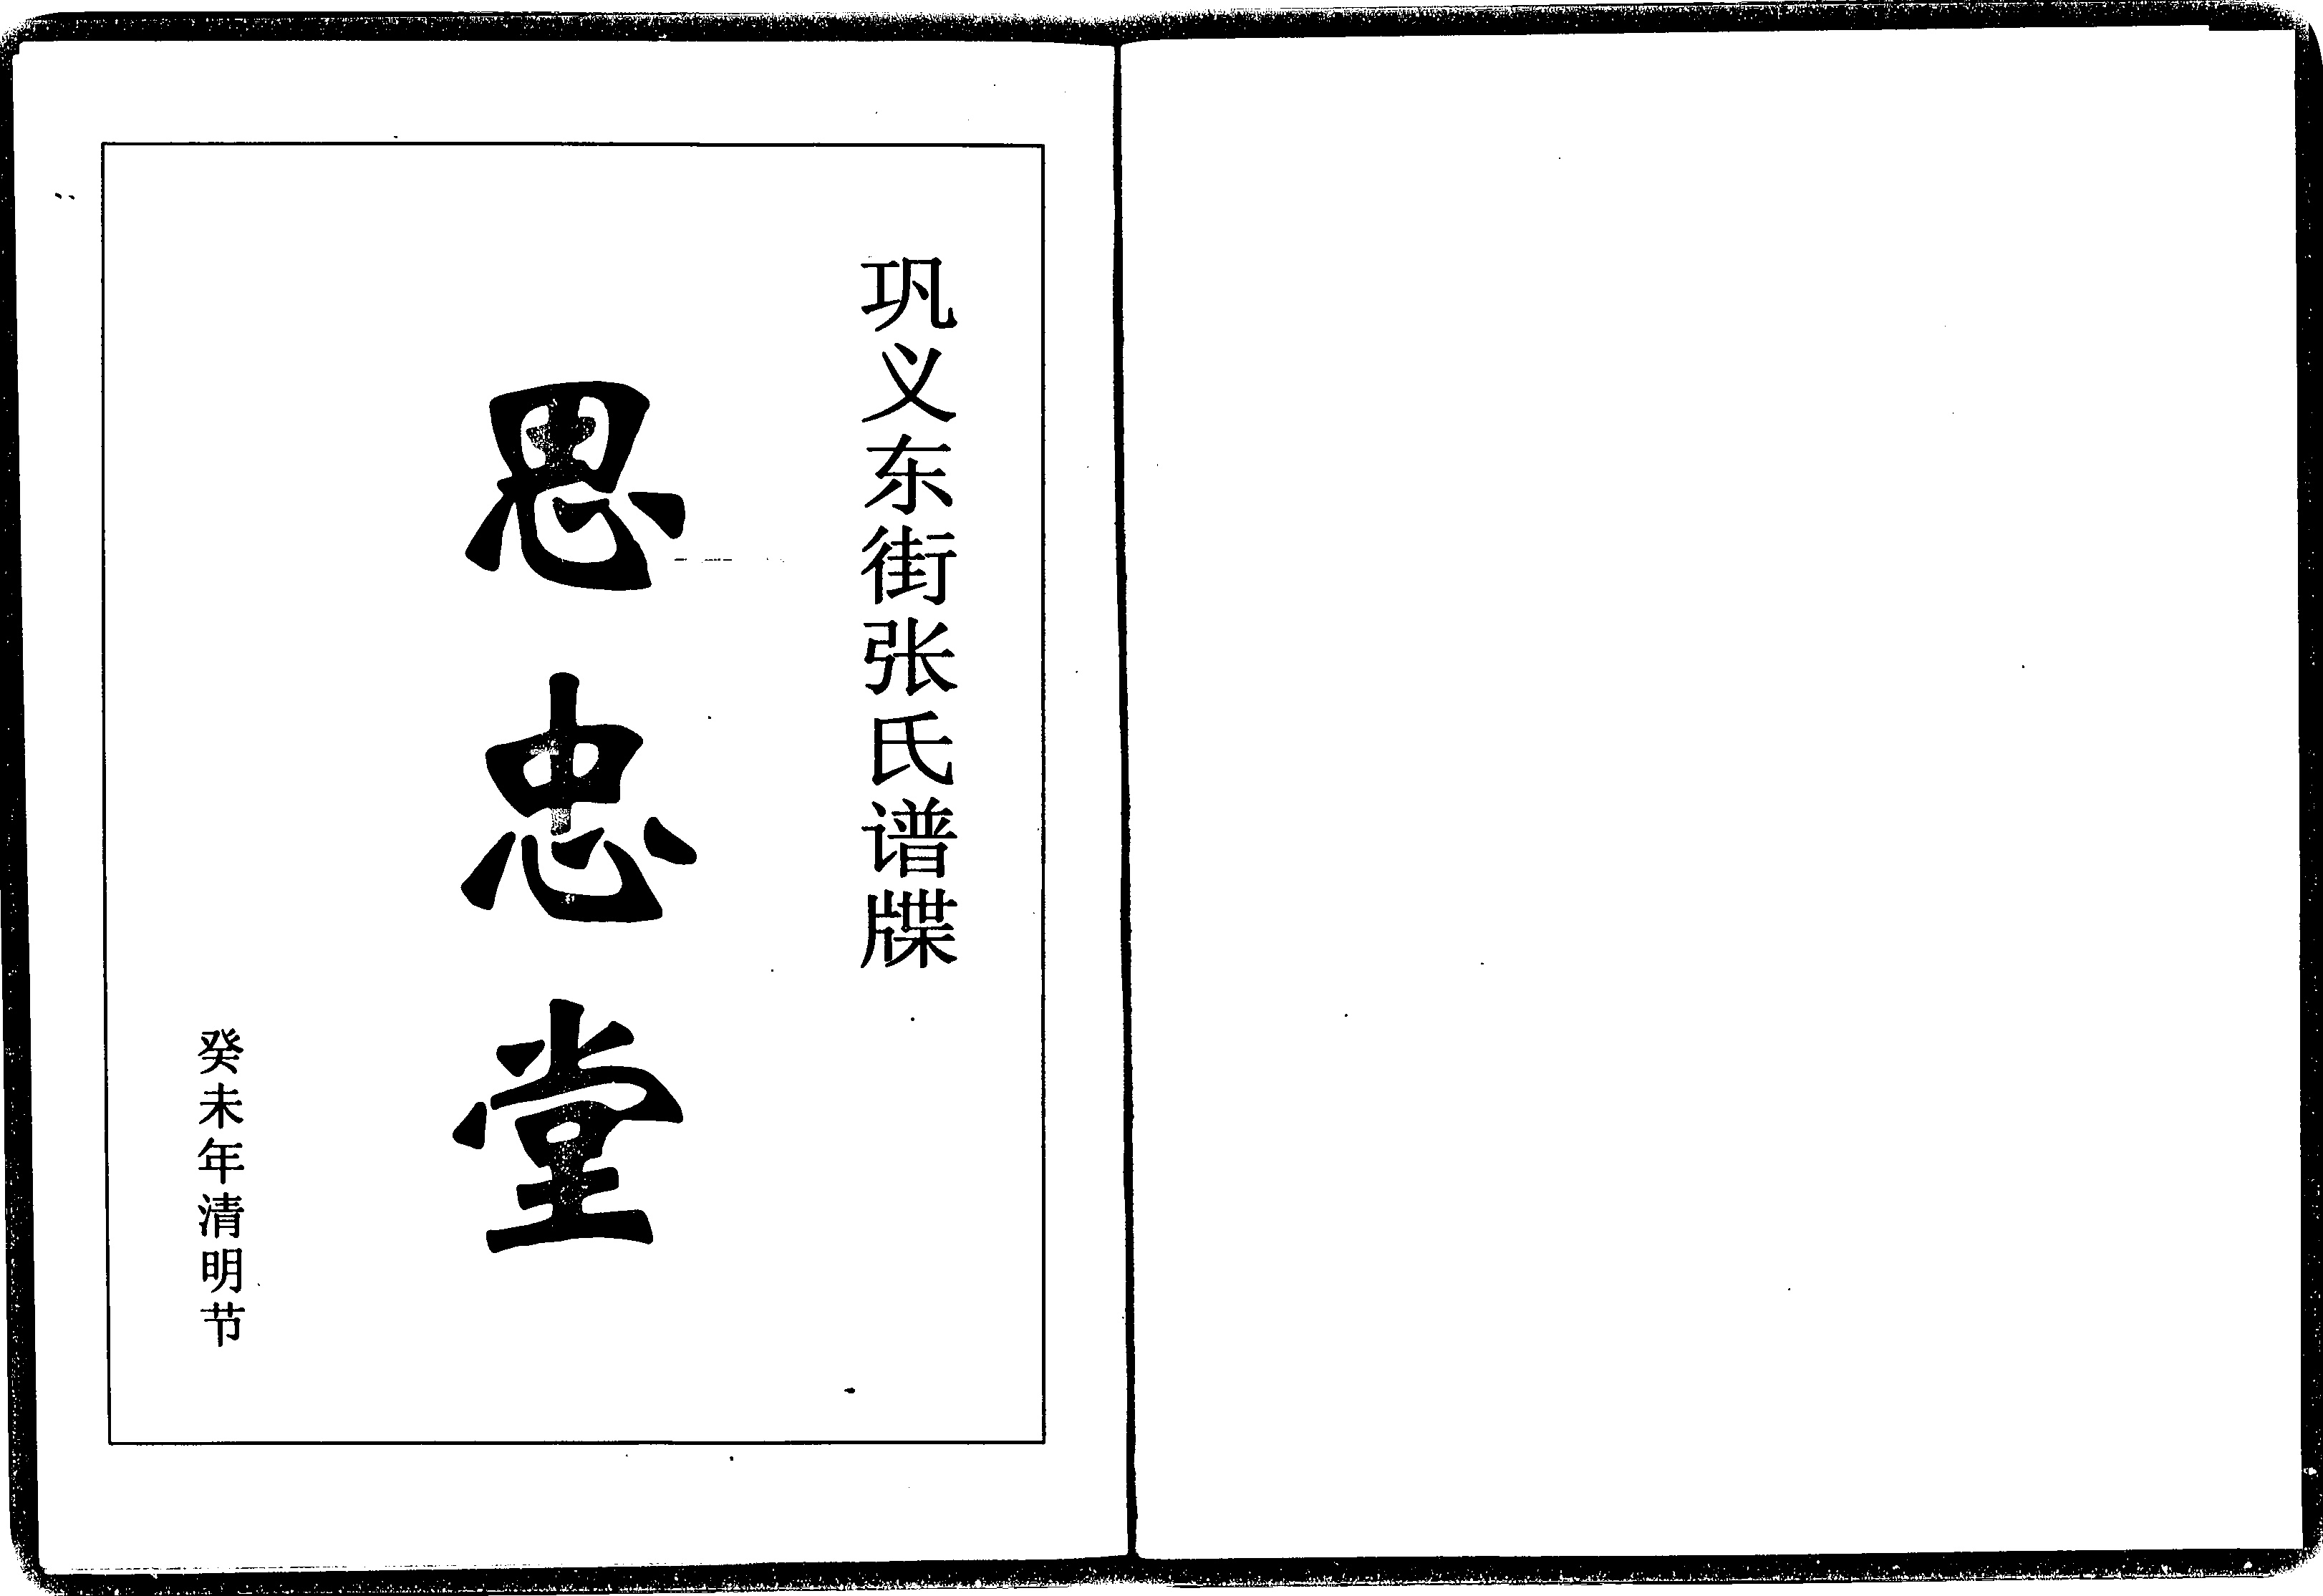 巩义东街张氏谱牒
思忠堂
癸未年清明节